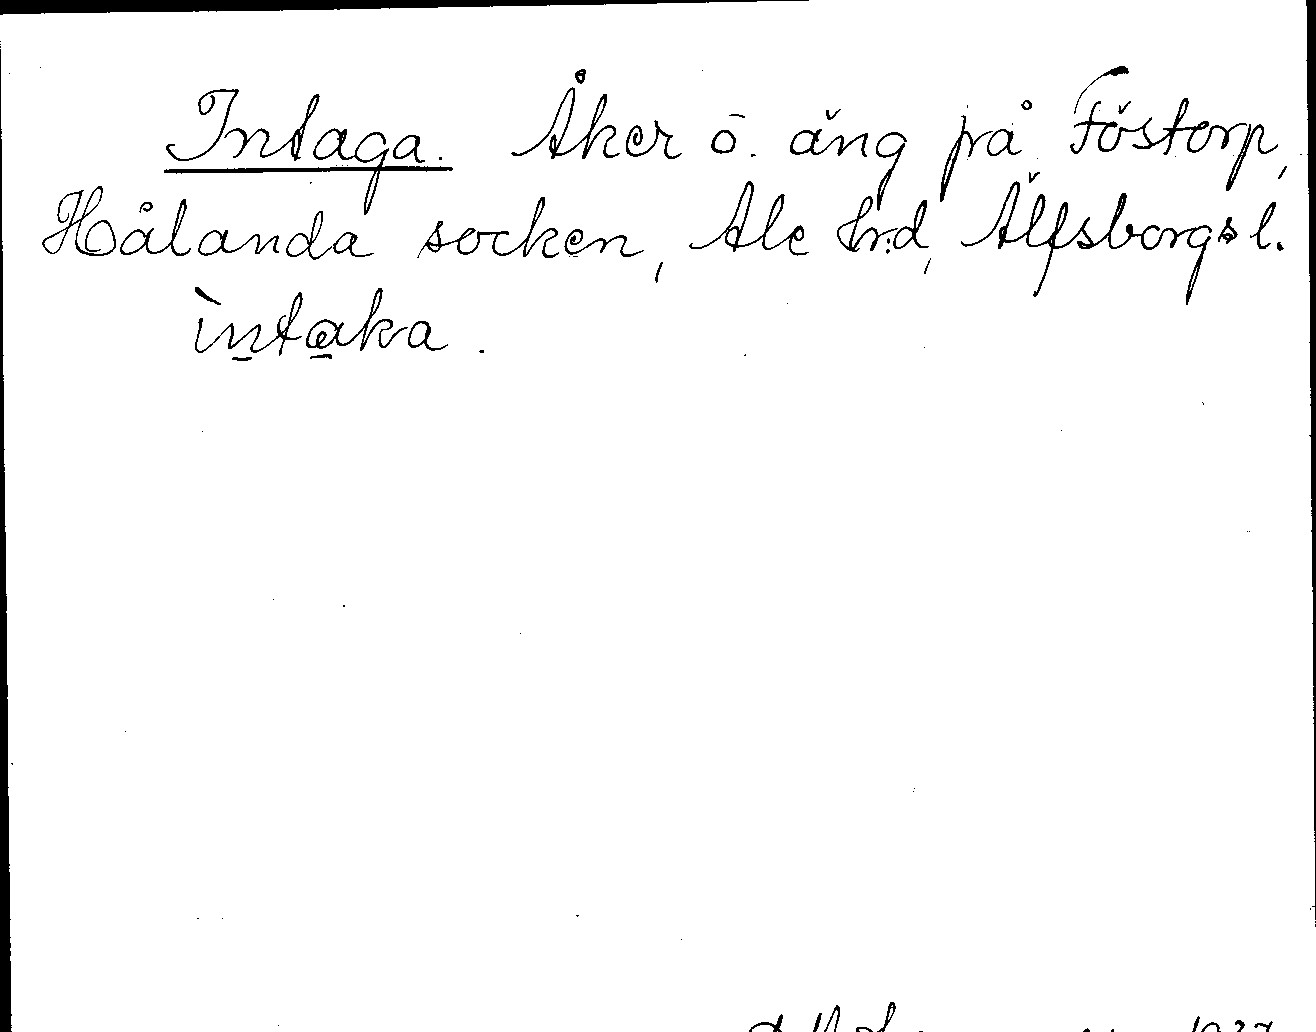 Intaga. Åker o. äng på Föstorp,
Hålanda socken, Ale hrd, Älfsborgs l.
ìntaka.